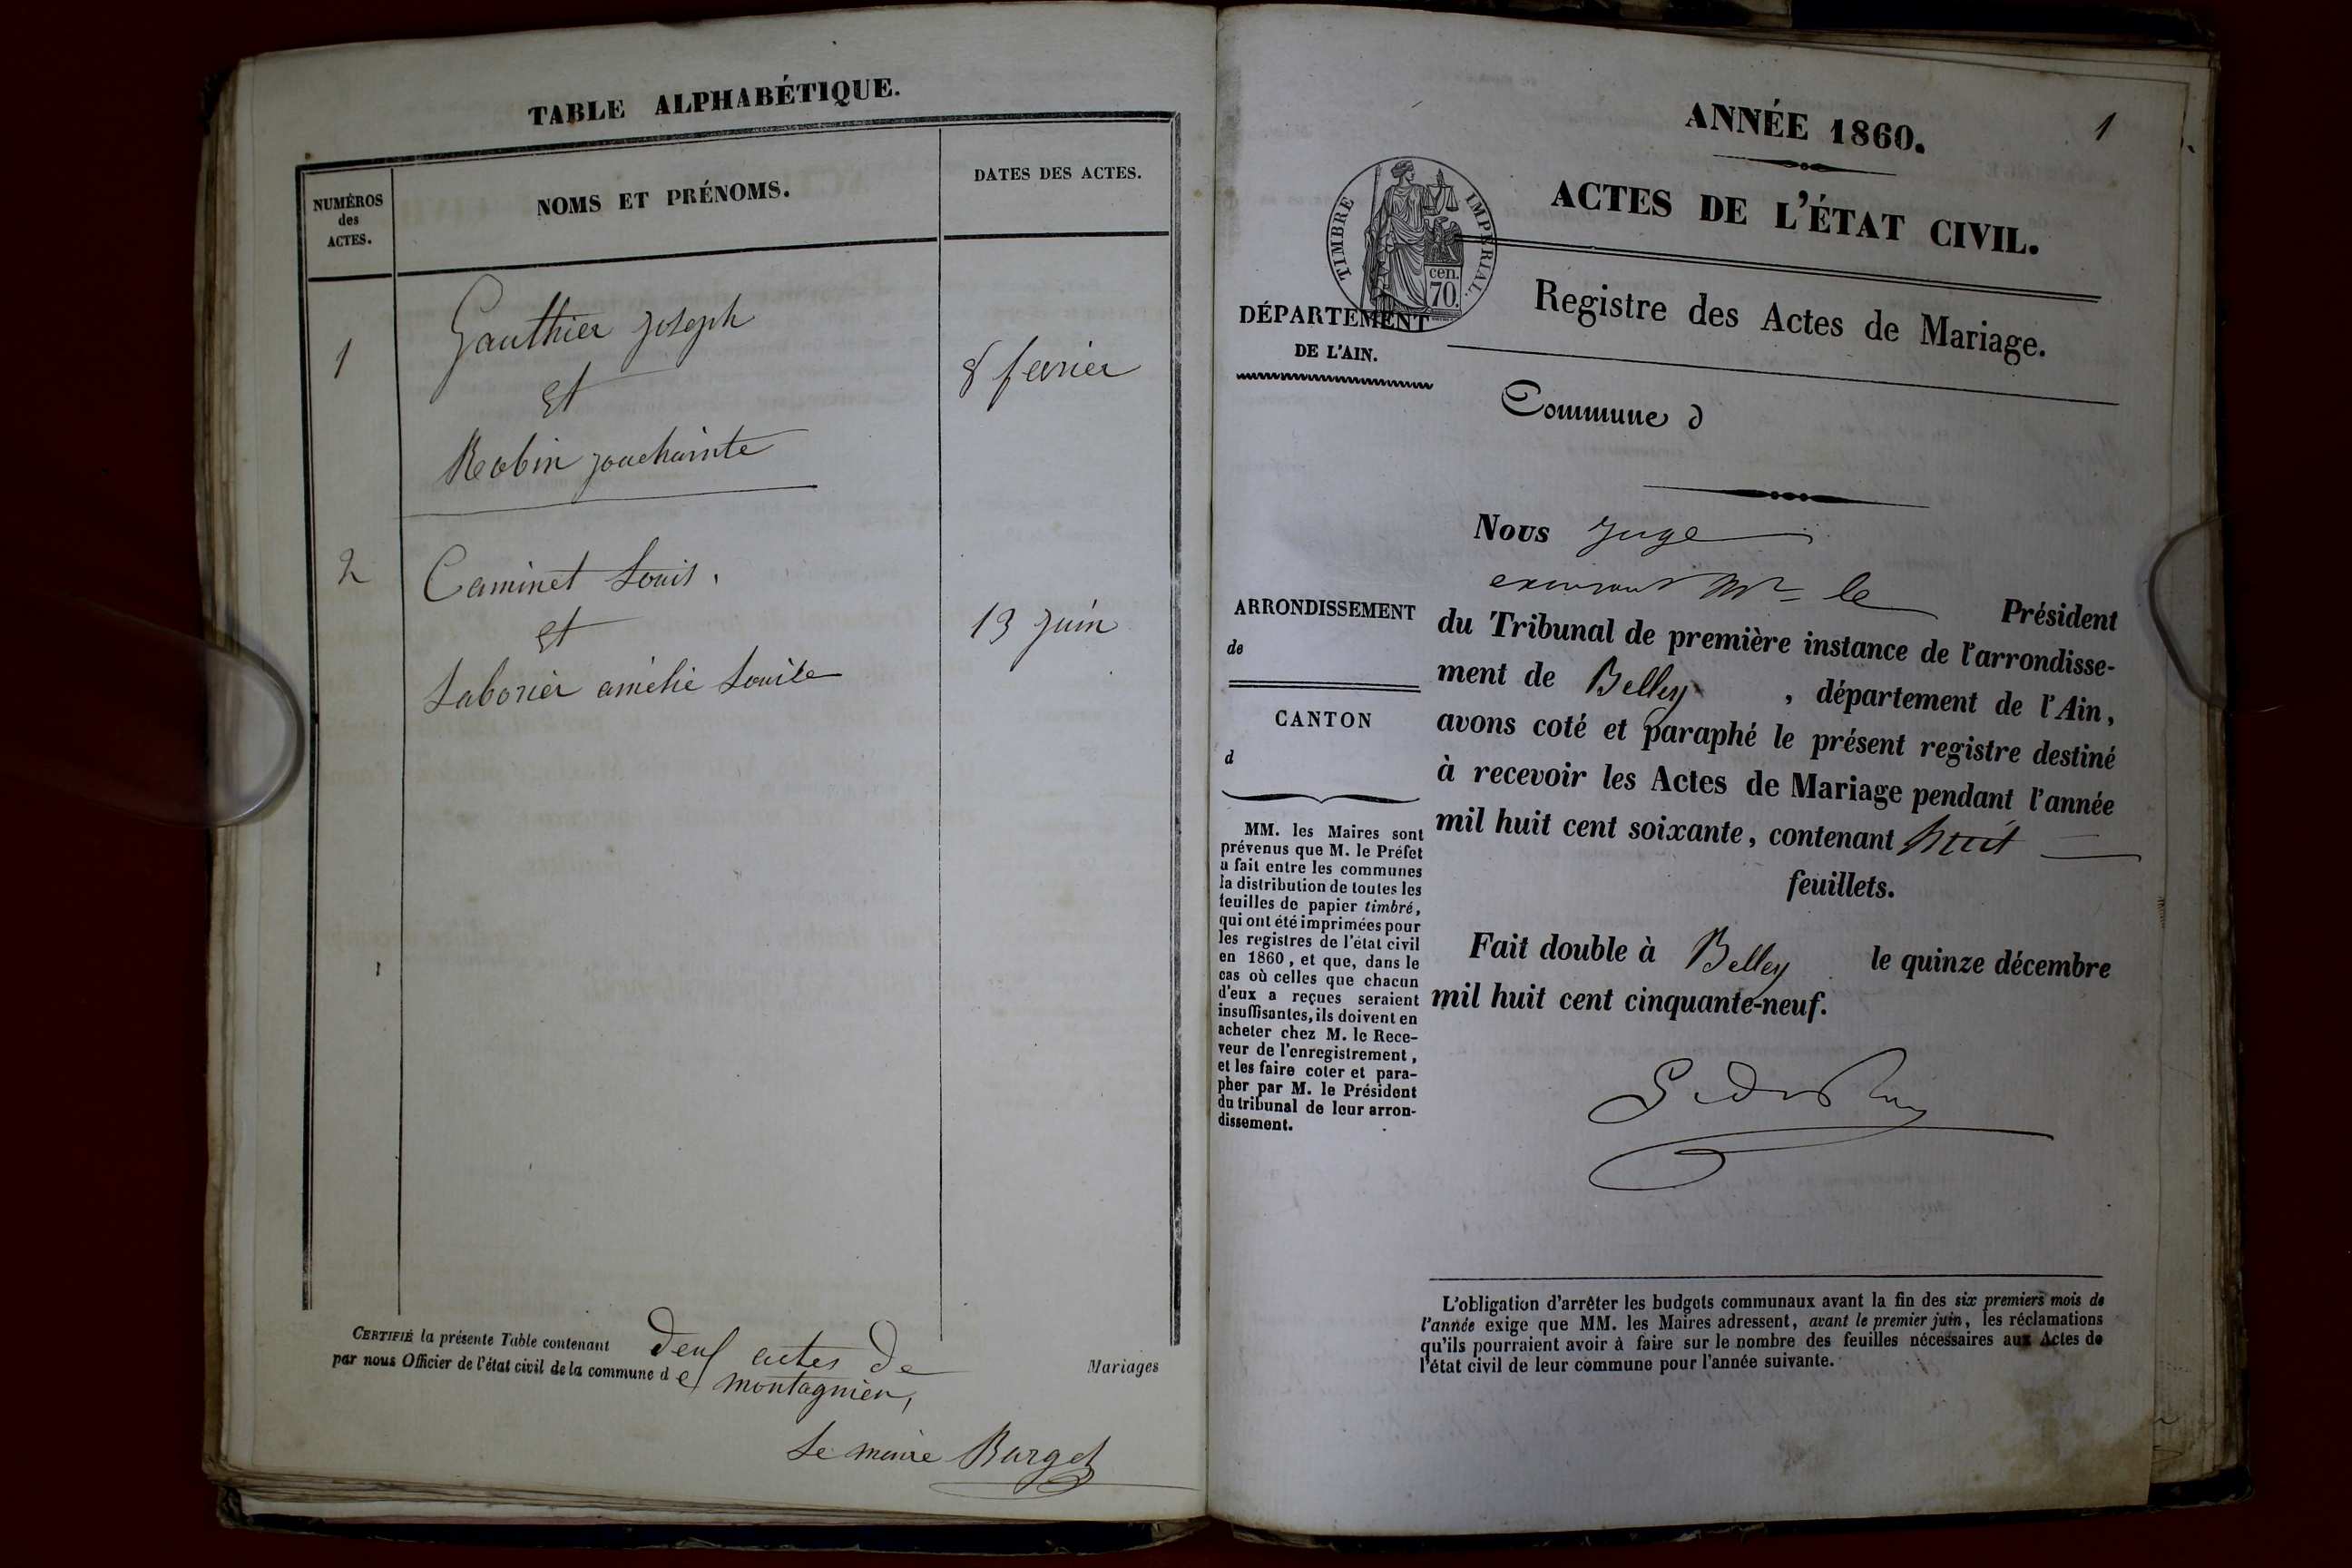 TABLE ALPHABÉTIQUE.
NUMÉROS
des
ACTES.
NOMS ET PRÉNOMS.
DATES DES ACTES.
1
Gauthier Joseph
et
Robin
8 fevrier
2
Caminet Louis.
et
Laborier amélie Louise
13 Juin
CERTIFIÉ la présente Table contenant deux actes de Mariages
par nous Officier de l'état civil de la commune de montagnieu,
Le maire Burget
1
ANNÉE 1860.
ACTES DE L'ÉTAT CIVIL.
TIMBRE IMPERIAL.
cen.
70.
Registre des Actes de Mariage.
DÉPARTEMENT
DE L'AIN.
Commune d
ARRONDISSEMENT
de
CANTON
d
MM. les Maires sont
prévenus que M. le Préfet
a fait entre les communes
la distribution de toutes les
feuilles de papier timbré,
qui ont été imprimées pour
les registres de l'état civil
en 1860, et que, dans le
cas où celles que chacun
d'eux a reçues seraient
insuffisantes, ils doivent en
acheter chez M. le Rece-
veur de l'enregistrement,
et les faire coter et para-
pher par M. le Président
du tribunal de leur arron-
dissement.
Nous Juge
Mr le Président
du Tribunal de première instance de l'arrondisse-
ment de Belley, département de l'Ain,
avons coté et paraphé le présent registre destiné
à recevoir les Actes de Mariage pendant l'année
mil huit cent soixante, contenant huit
feuillets.
Fait double à Belley le quinze décembre
mil huit cent cinquante-neuf.
L'obligation d'arrêter les budgets communaux avant la fin des six premiers mois de
l'année exige que MM. les Maires adressent, avant le premier juin, les réclamations
qu'ils pourraient avoir à faire sur le nombre des feuilles nécessaires aux Actes de
l'état civil de leur commune pour l'année suivante.